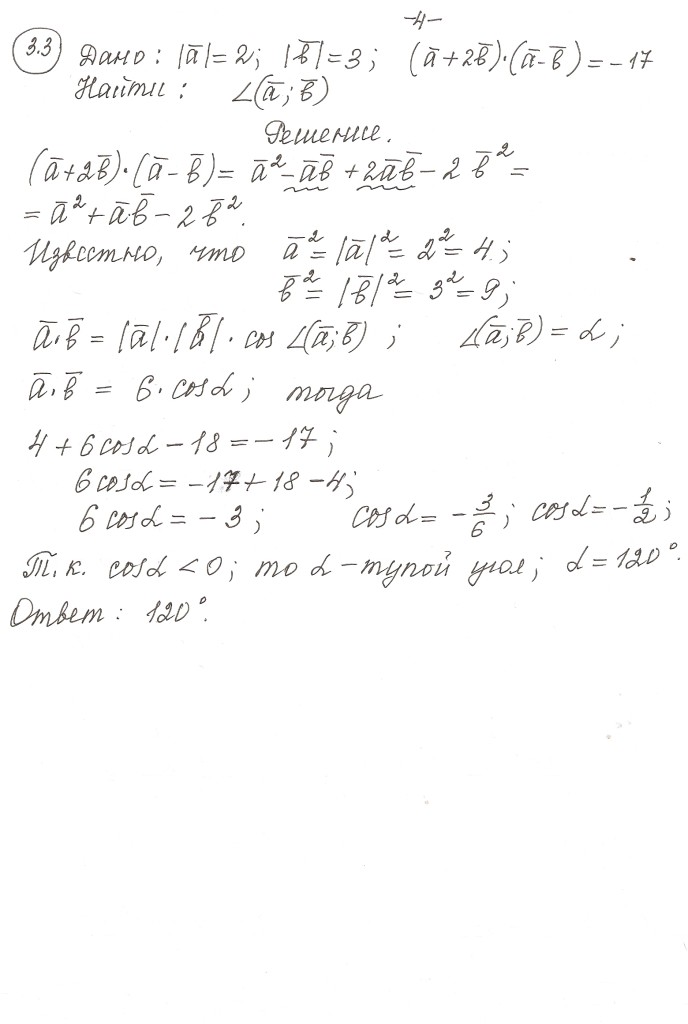 -4-
3.3 Дано: |a̅|=2; |b̅|=3; (a̅+2b̅)·(a̅-b̅)=-17
Найти: ∠(a̅;b̅)
Решение.
(a̅+2b̅)·(a̅-b̅)= a̅²-a̅b̅+2a̅b̅-2b̅²=
=a̅²+a̅·b̅-2b̅².
Известно, что a̅²=|a̅|²=2²=4;
b̅²=|b̅|²=3²=9;
a̅·b̅=|a̅|·|b̅|·cos∠(a̅;b̅); ∠(a̅;b̅)=α;
a̅·b̅ = 6·cosα; тогда
4+6cosα-18=-17;
6cosα=-17+18-4;
6cosα=-3; cosα=-3/6; cosα=-1/2;
Т.к. cosα<0; то α-тупой угол; α=120°.
Ответ: 120°.